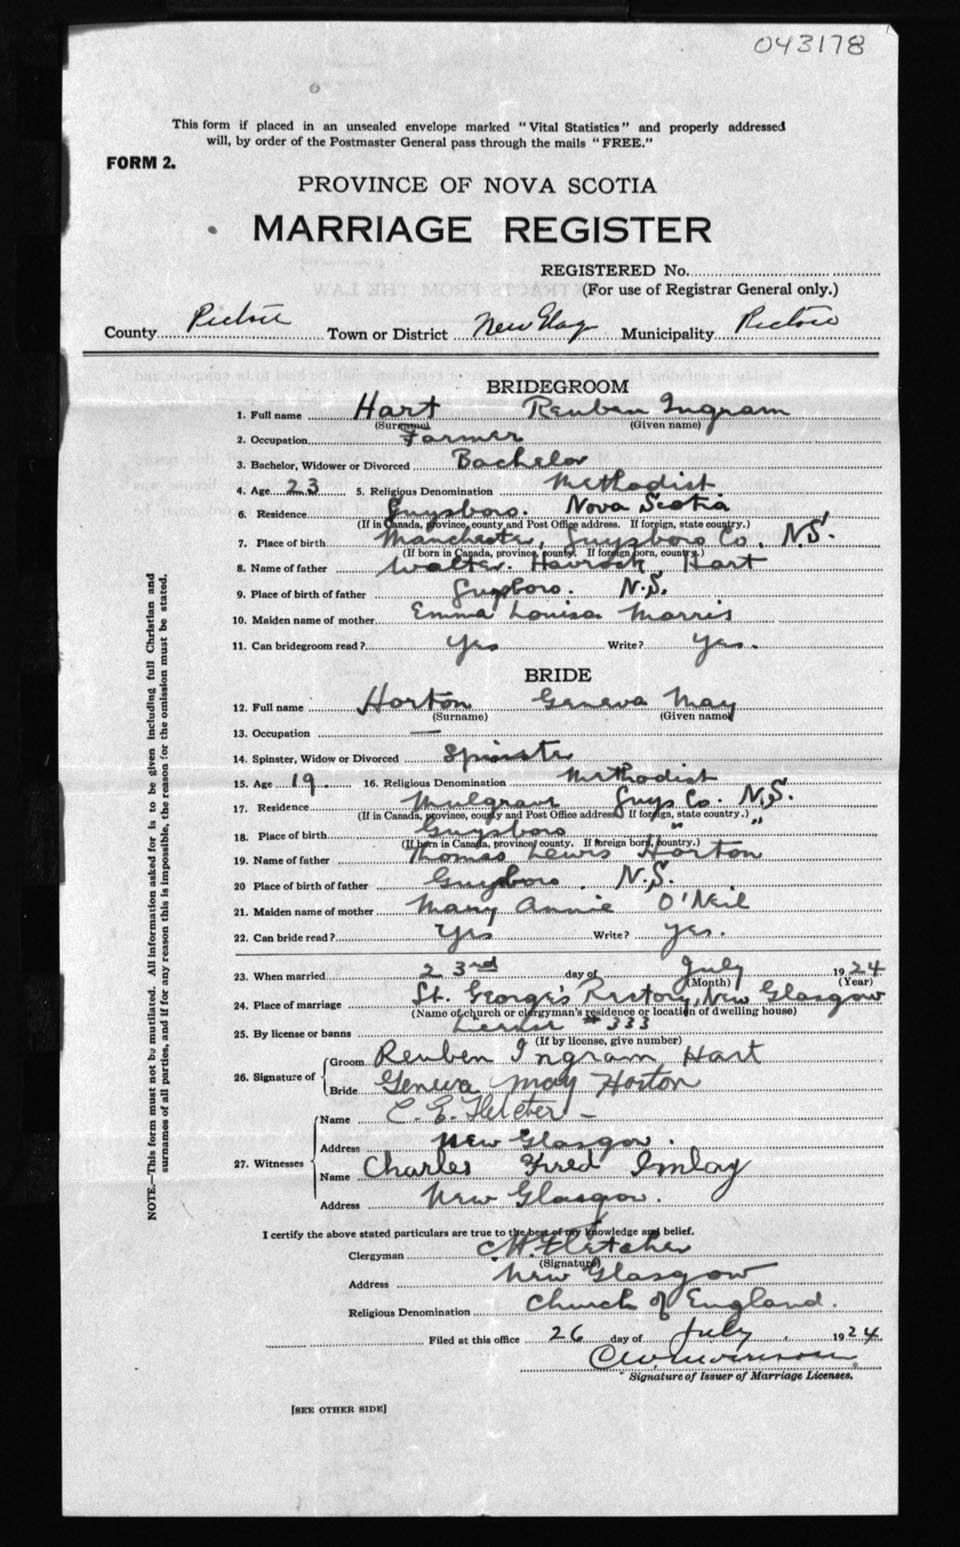 043178
This form if placed in an unsealed envelope marked "Vital Statistics" and properly addressed
will, by order of the Postmaster General pass through the mails "FREE."
FORM 2.
PROVINCE OF NOVA SCOTIA
MARRIAGE REGISTER
REGISTERED No.
(For use of Registrar General only.)
County Pictou Town or District New Glasg Municipality Pictou
BRIDEGROOM
1. Full name Hart Reuben Ingram
(Surname) (Given name)
2. Occupation Farmer
3. Bachelor, Widower or Divorced Bachelor
4. Age 23 5. Religious Denomination Methodist
6. Residence Guysboro. Nova Scotia
(If in Canada, province, county and Post Office address. If foreign, state country.)
7. Place of birth Manchester, Guysboro Co. N.S.
(If born in Canada, province, county. If foreign born, country.)
8. Name of father Walter. Havrock Hart
9. Place of birth of father Guysboro. N.S.
10. Maiden name of mother Emma Louisa Morris
11. Can bridegroom read? Yes Write? Yes.
BRIDE
12. Full name Horton Geneva May
(Surname) (Given name)
13. Occupation —
14. Spinster, Widow or Divorced Spinster
15. Age 19. 16. Religious Denomination Methodist
17. Residence Mulgrave Guys Co. N.S.
(If in Canada, province, county and Post Office address. If foreign, state country.)
18. Place of birth Guysboro " "
(If born in Canada, province, county. If foreign born, country.)
19. Name of father Thomas Lewis Horton
20 Place of birth of father Guysboro. N.S.
21. Maiden name of mother Mary Annie O'Neil
22. Can bride read? Yes Write? Yes.
23. When married 23rd day of July 1924
(Month) (Year)
24. Place of marriage St. George's Rectory, New Glasgow
(Name of church or clergyman's residence or location of dwelling house)
25. By license or banns License #333
(If by license, give number)
26. Signature of Groom Reuben Ingram Hart
Bride Geneva May Horton
27. Witnesses Name C. E. Fletcher –
Address New Glasgow.
Name Charles Fred Imlay
Address New Glasgow.
I certify the above stated particulars are true to the best of my knowledge and belief.
Clergyman Fletcher
(Signature)
Address New Glasgow
Religious Denomination Church of England.
Filed at this office 26 day of July 1924.
Signature of Issuer of Marriage Licenses.
[SEE OTHER SIDE]
NOTE.—This form must not be mutilated. All information asked for is to be given including full Christian and
surnames of all parties, and if for any reason this is impossible, the reason for the omission must be stated.